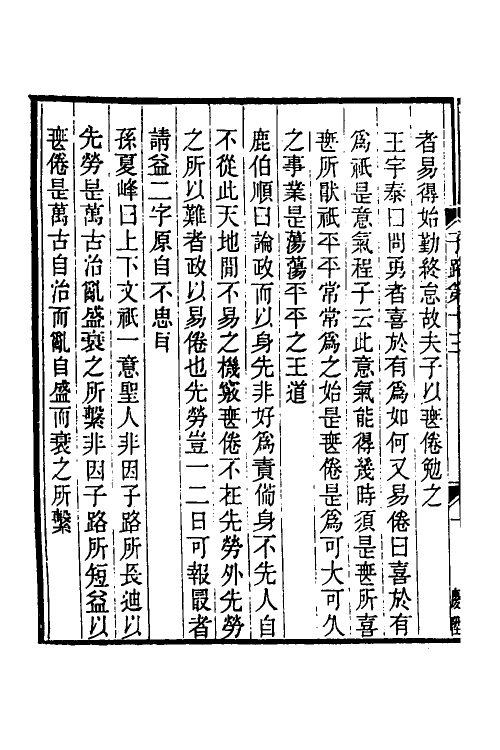 者易得始勤終怠故夫子以無倦勉之
王宇泰曰問勇者喜於有爲如何又易倦曰喜於有
爲祇是意氣程子云此意氣能得幾時須是無所喜
無所猒祇平平常常爲之始是無倦是爲可大可久
之事業是蕩蕩平平之王道
鹿伯順曰論政而以身先非好爲責備身不先人自
不從此天地閒不易之機竅無倦不在先勞外先勞
之所以難者政以易倦也先勞豈一二日可報最者
請益二字原自不忠㫖
孫夏峰曰上下文祇一意聖人非因子路所長迪以
先勞是萬古治亂盛衰之所繫非因子路所短益以
無倦是萬古自治而亂自盛而衰之所繫
子路第十三